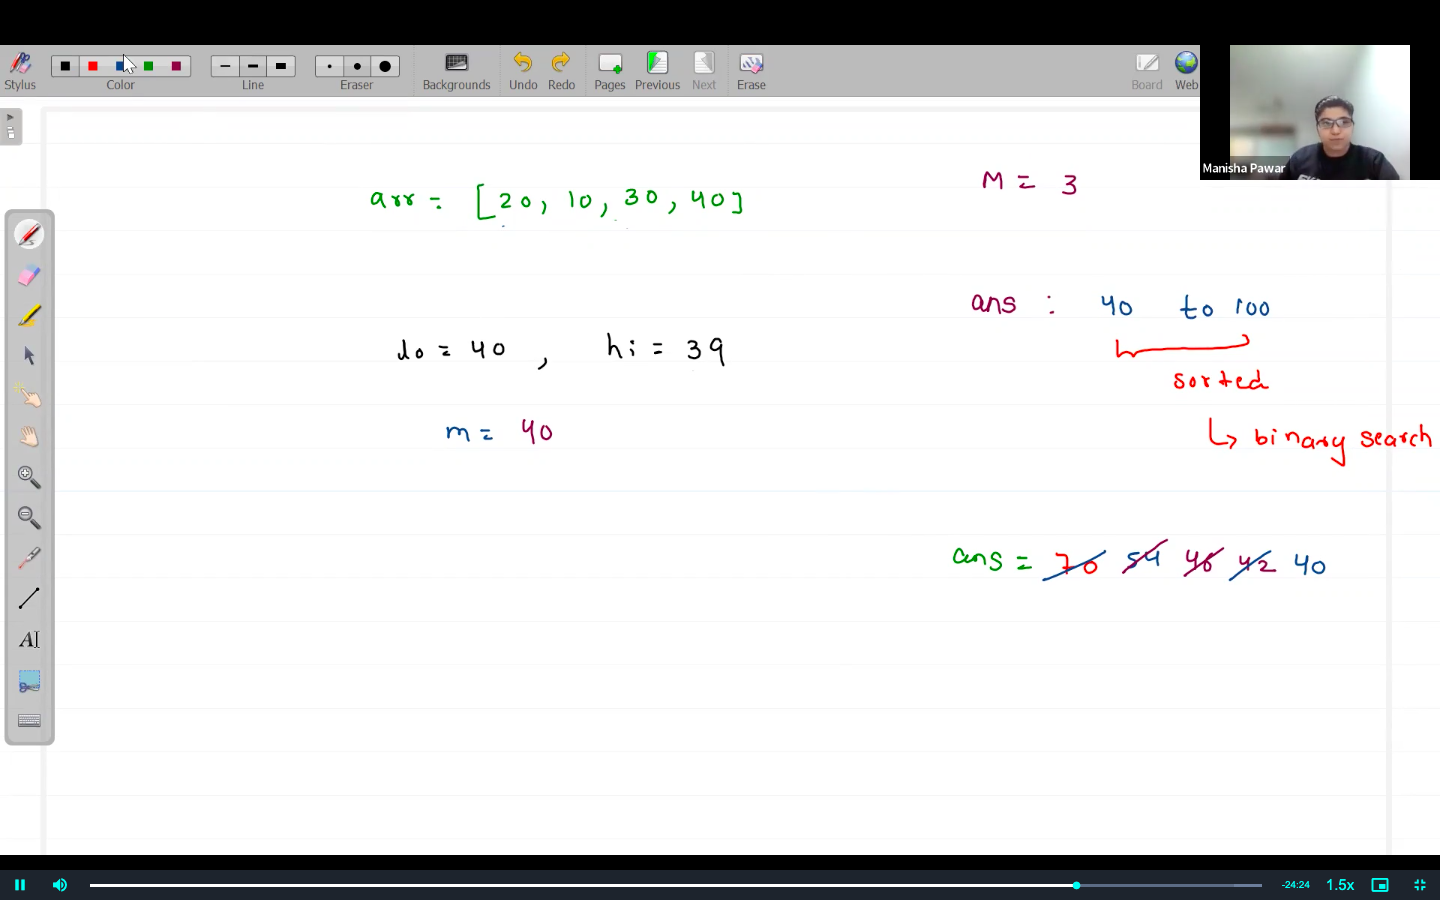 Stylus Color Line Eraser Backgrounds Undo Redo Pages Previous Next Erase Board Web
Manisha Pawar
arr = [20, 10, 30, 40]
M = 3
ans : 40 to 100
lo = 40 , hi = 39
sorted
m = 40
↳ binary search
ans = 70 54 46 42 40
AI
-24:24 1.5x